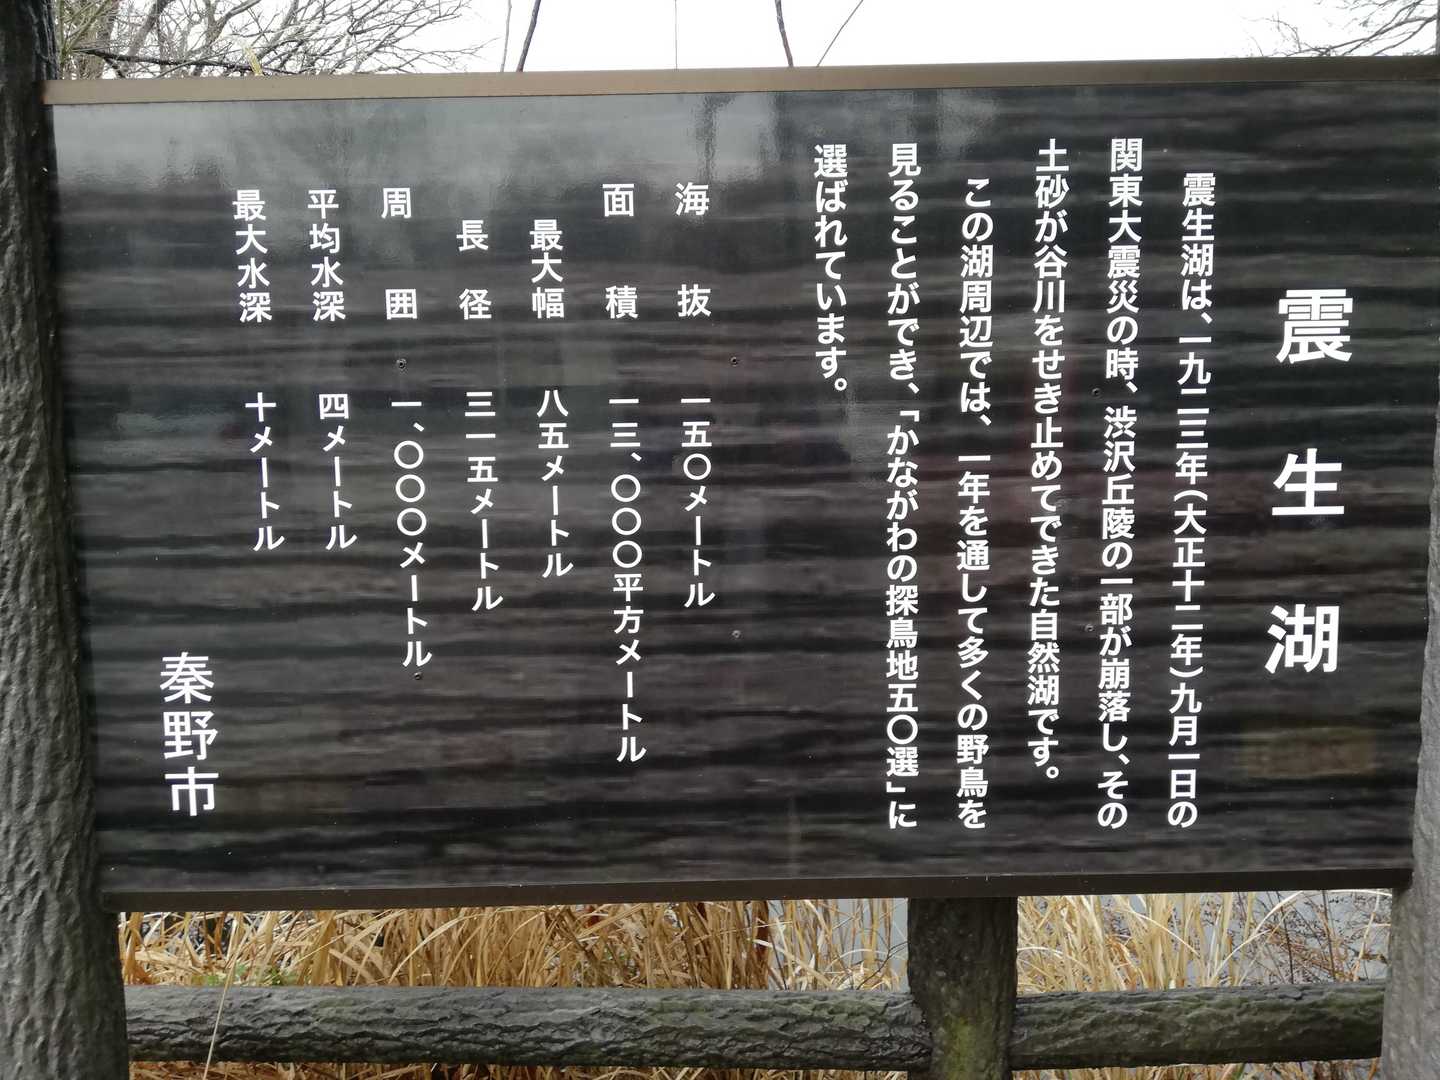 震生湖
震生湖は、一九二三年(大正十二年)九月一日の
関東大震災の時、渋沢丘陵の一部が崩落し、その
土砂が谷川をせき止めてできた自然湖です。
この湖周辺では、一年を通して多くの野鳥を
見ることができ、「かながわの探鳥地五〇選」に
選ばれています。
海抜 一五〇メートル
面積 一三、〇〇〇平方メートル
最大幅 八五メートル
長径 三一五メートル
周囲 一、〇〇〇メートル
平均水深 四メートル
最大水深 十メートル
秦野市